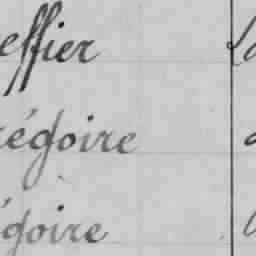 effier
régoire
égoire